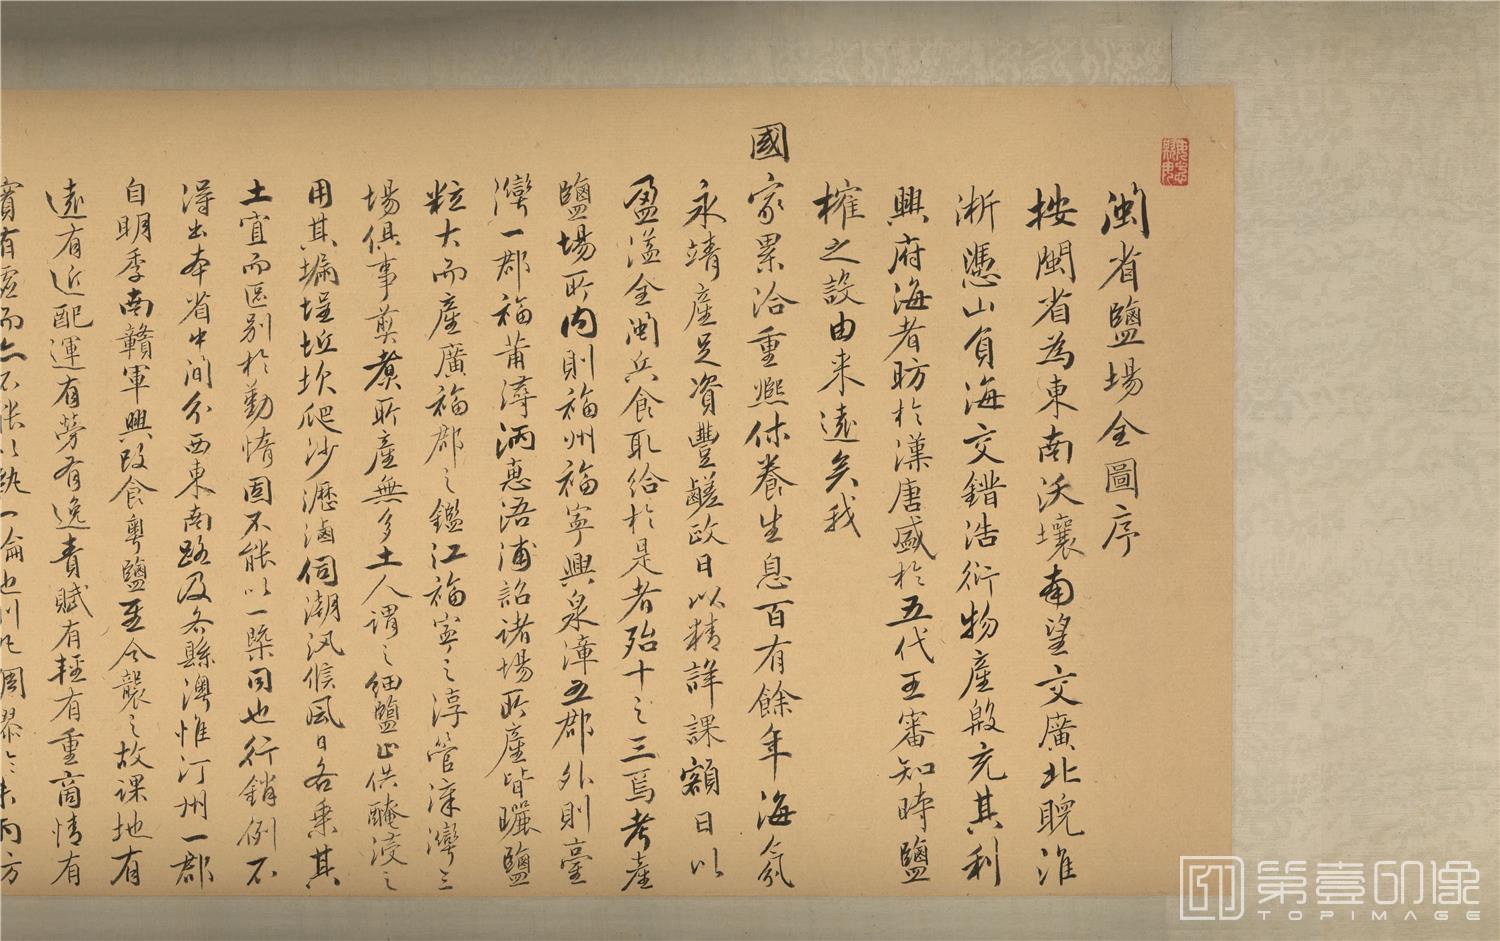 閩省鹽場全圖序
按閩省為東南沃壤南望交廣北睨淮
淅憑山負海交錯浩衍物產殷充其利
興府海者昉於漢唐盛於五代王審知時鹽
榷之設由来遠矣我
國家累洽重熙休養生息百有餘年海氛
永靖產足資豐鹺政日以精詳課額日以
盈溢全閩兵食取給於是者殆十之三焉考產
鹽場所内則福州福寧興泉漳五郡外則臺
灣一郡福莆潯𣲖惠浯浦詔諸場所產皆曬鹽
粒大而產廣福郡之鑑江福寧之淳管漳灣三
場俱事煎煮所產無多土人謂之細鹽止供醃浸之
用其漏埕坵坎爬沙瀝滷伺潮汛候風日各乘其
土宜而區别於勤惰固不能以一槩同也行銷例不
得出本省中間分西東南路及各縣澳惟汀州一郡
自明季南贛軍興改食粵鹽至今襲之故課地有
遠有近配運有勞有逸責賦有輕有重商情有
第壹印像
TOPIMAGE